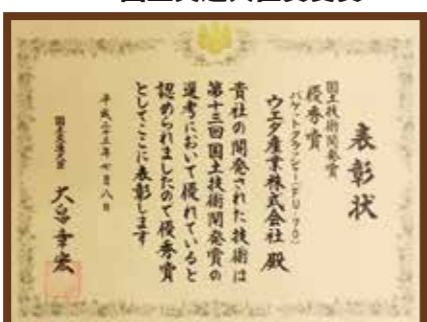 表彰状
国土技術開発賞
優秀賞
バケットクラッシャー(FU-70)
ウエタ産業株式会社 殿
貴社の開発された技術は
第十三回国土技術開発賞の
選考において優れていると
認められましたので優秀賞
としてここに表彰します
平成二十三年七月八日
国土交通大臣 大畠章宏